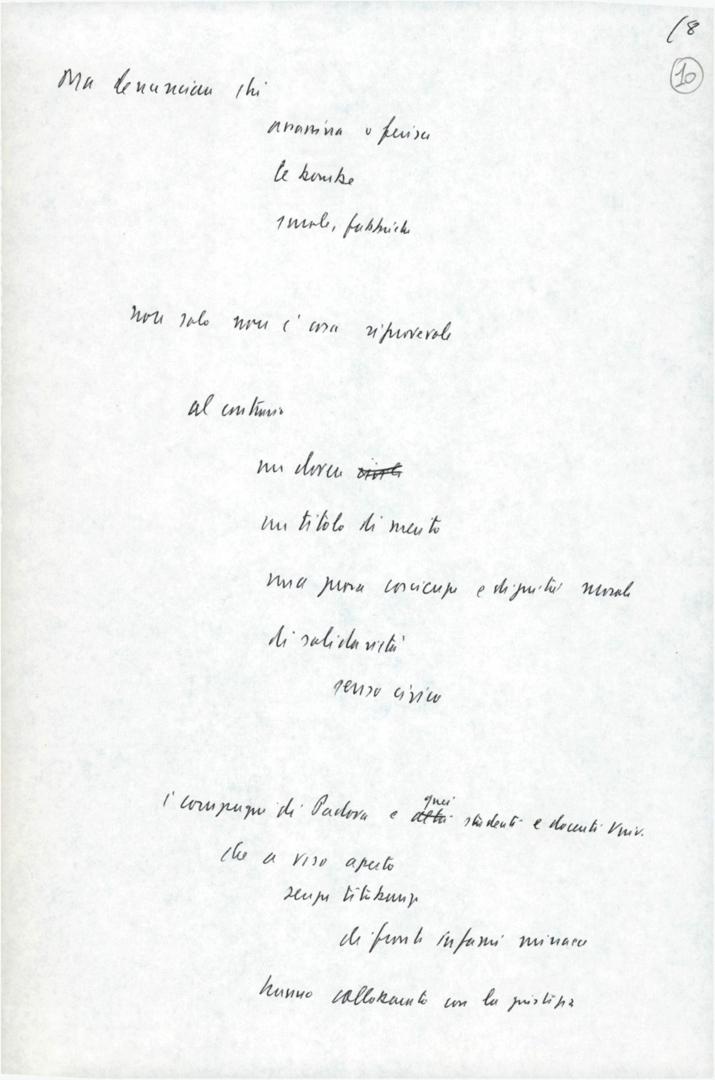 18
10
Ma denunciare chi
assassina o ferisce
le bombe
scuole, fabbriche
non solo non è cosa riprovevole
al contrario
un dovere civile
un titolo di merito
una prova coscienza e dignità morale
di solidarietà
senso civico
quei
i compagni di Padova e altri studenti e docenti Univ.
che a viso aperto
senza titubanze
di fronte infami minacce
hanno collaborato con la giustizia